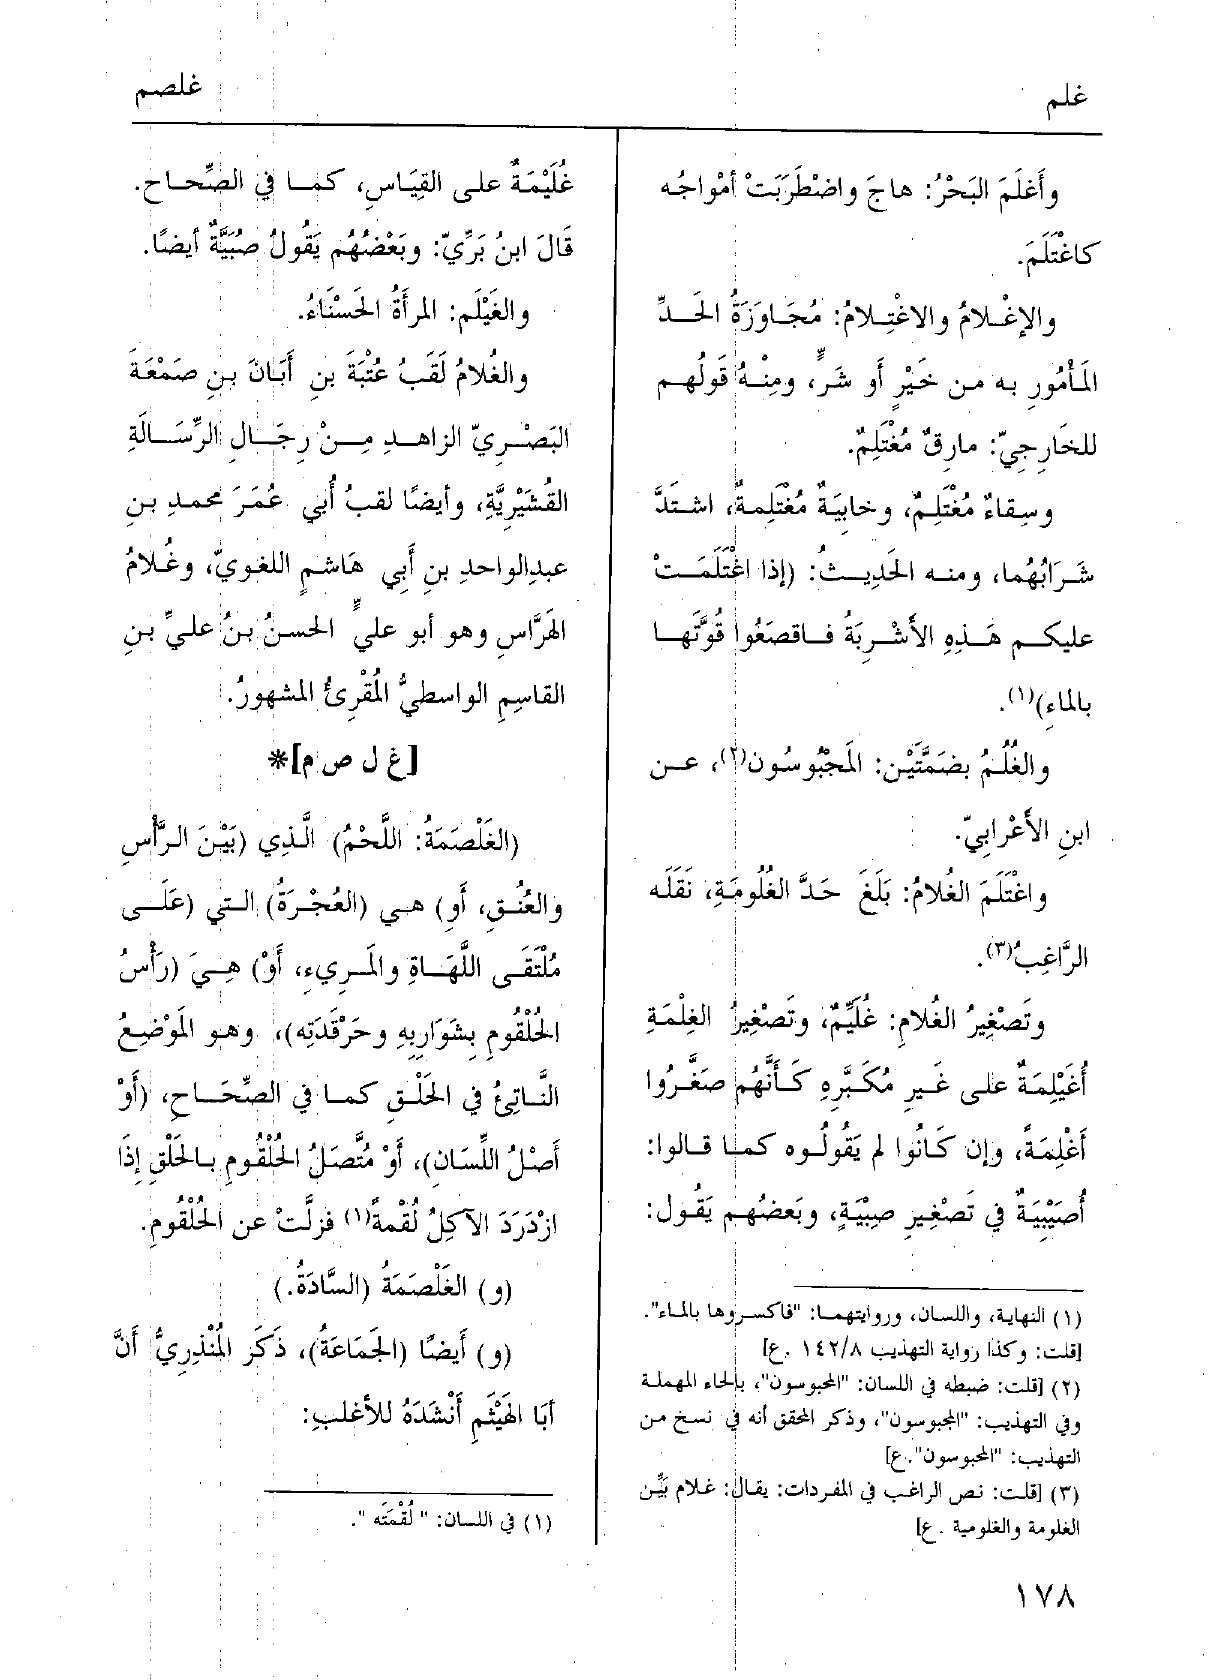 غلم
غلصم
وأَغلَمَ البَحْرُ: هاجَ واضْطَرَبَتْ أمْواجُه
كاغْتَلَمَ.
والإغْلامُ والاغْتِلامُ: مُجَاوَزَةُ الحَدِّ
المَأْمُورِ به من خَيْرٍ أو شَرٍّ، ومِنْهُ قَولُهم
للخَارِجِيّ: مارِقٌ مُغْتَلِمٌ.
وسِقاءٌ مُغْتَلِمٌ، وخابِيَةٌ مُغْتَلِمةٌ، اشتَدَّ
شَرَابُهُما، ومنه الحَدِيثُ: (إذا اغْتَلَمَتْ
عليكم هَذِهِ الأَشْرِبَةُ فاقصَعُوا قُوَّتَها
بالماءِ)(١).
والغُلُمُ بضَمَّتَيْن: المَجْبُوسُون(٢)، عن
ابنِ الأَعْرابِيّ.
واغْتَلَمَ الغُلامُ: بَلَغَ حَدَّ الغُلُومَةِ، نَقَلَه
الرَّاغِبُ(٣).
وتَصْغِيرُ الغُلامِ: غُلَيِّمٌ، وتَصْغِيرُ الغِلْمَةِ
أُغَيْلِمَةٌ على غَيرِ مُكَبَّرِهِ كَأنَّهُم صَغَّرُوا
أَغْلِمَةً، وإن كَانُوا لم يَقُولُوه كما قالوا:
أُصَيْبِيَةٌ في تَصْغِيرِ صِبْيَةٍ، وبَعضُهم يَقُول:
(١) النهاية، واللسان، وروايتهما: "فاكسروها بالماء".
[قلت: وكذا رواية التهذيب ١٤٢/٨ .ع]
(٢) [قلت: ضبطه في اللسان: "المحبوسون"، بالحاء المهملة
وفي التهذيب: "المجبوسون"، وذكر المحقق أنه في نسخ من
التهذيب: "المحبوسون".ع]
(٣) [قلت: نص الراغب في المفردات: يقال: غلام بَيِّن
الغلومة والغلومية .ع]
غُلَيْمَةٌ على القِيَاسِ، كما في الصِّحاح.
قَالَ ابنُ بَرِّيّ: وبَعْضُهُم يَقُولُ صُبَيَّةٌ أيضًا.
والغَيْلَم: المرأَةُ الحَسْنَاءُ.
والغُلامُ لَقَبُ عُتْبَةَ بنِ أَبَانَ بنِ صَمْعَةَ
البَصْرِيّ الزاهدِ مِنْ رِجَالِ الرِّسَالَةِ
القُشَيْرِيَّةِ، وأيضًا لقبُ أبي عُمَرَ محمدِ بنِ
عبدِالواحدِ بنِ أَبِي هَاشمٍ اللغويّ، وغُلامُ
الهَرَّاسِ وهو أبو عليٍّ الحسنُ بنُ عليِّ بنِ
القاسِمِ الواسطيُّ المُقْرِئُ المشهورُ.
[غ ل ص م]*
(الغَلْصَمَةُ: اللَّحْمُ) الَّذِي (بَيْنَ الرَّأْسِ
والعُنُقِ، أو) هي (العُجْرَةُ) التي (عَلَى
مُلْتَقَى اللَّهَاةِ والمَرِيءِ، أَوْ) هِيَ (رَأْسُ
الحُلْقُومِ بِشَوَارِبِهِ وحَرْقَدَتِه)، وهو المَوْضِعُ
النَّاتِئُ في الحَلْقِ كما في الصِّحَاحِ، (أَوْ
أَصْلُ اللِّسَانِ)، أَوْ مُتَّصَلُ الحُلْقُومِ بالحَلْقِ إذَا
ازْدَرَدَ الآكِلُ لُقْمةً(١) فزلَّتْ عن الحُلْقُومِ.
(و) الغَلْصَمَةُ (السَّادَةُ.)
(و) أَيضًا (الجَمَاعَةُ)، ذَكَرَ المُنْذِرِيُّ أَنَّ
أبَا الهَيْثَمِ أَنْشَدَهُ للأغلبِ:
(١) في اللسان: " لُقْمَتَه ".
١٧٨